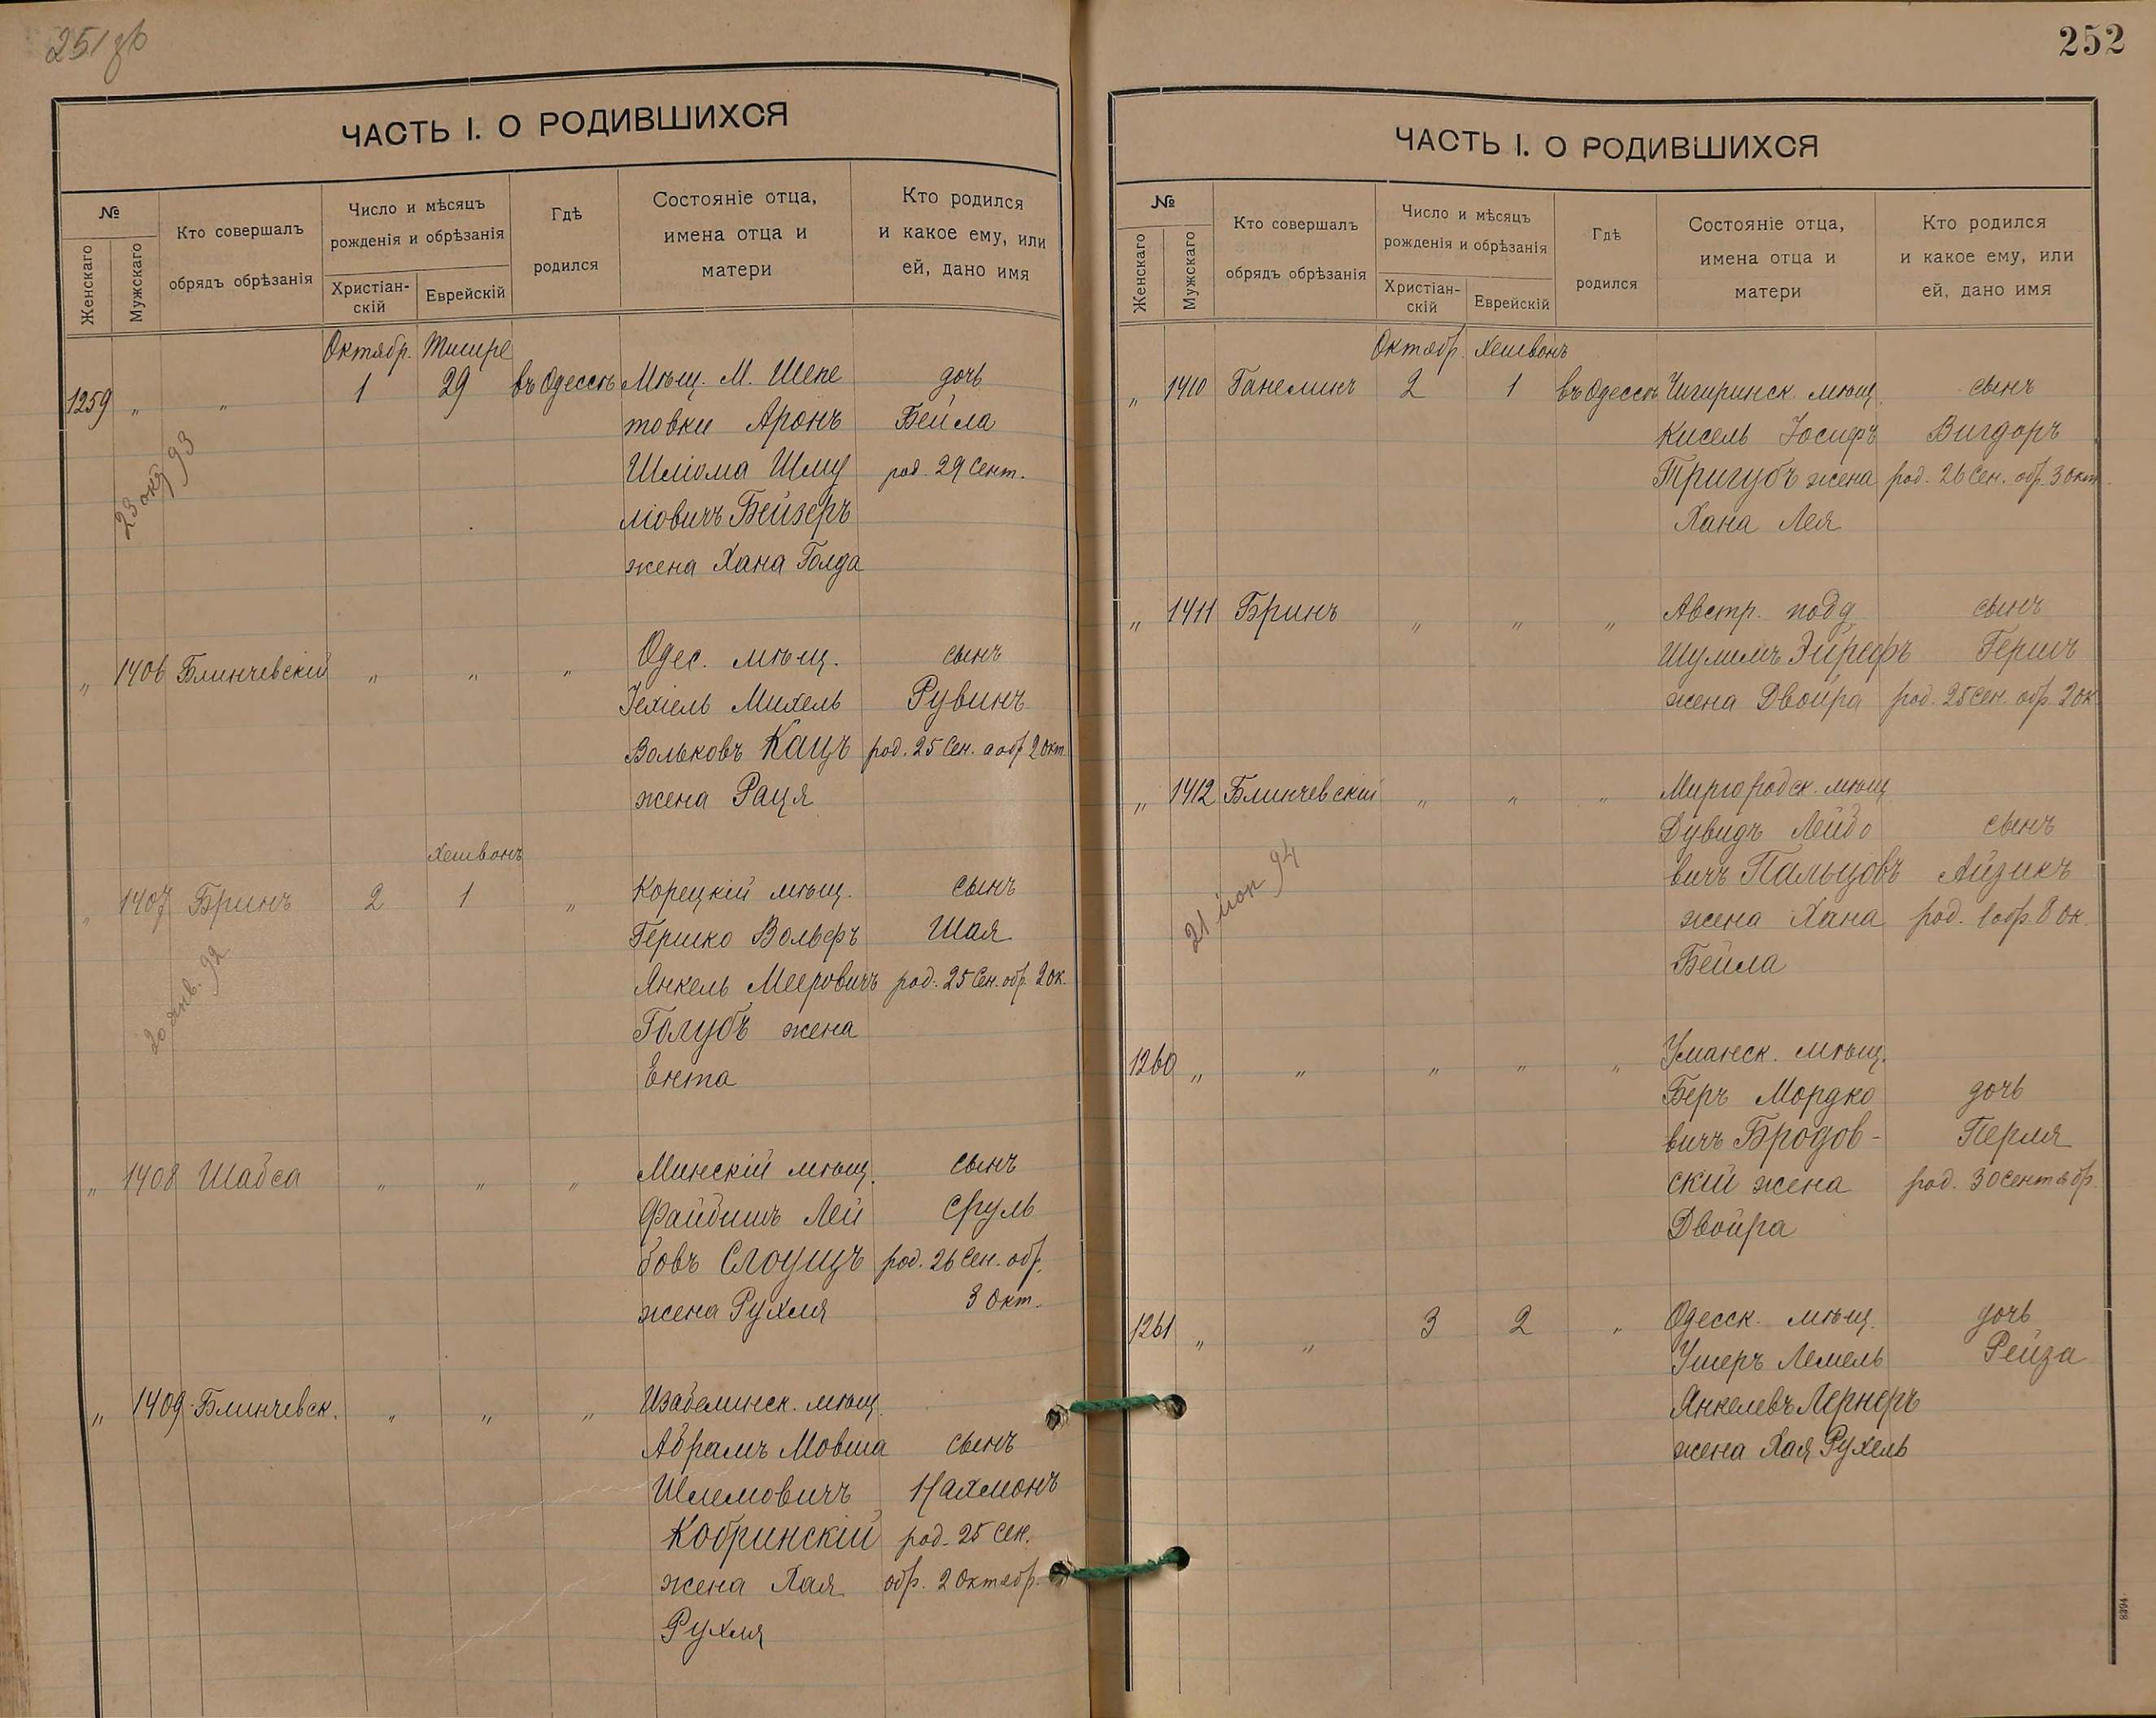 251 об
ЧАСТЬ I. О РОДИВШИХСЯ
№
Женскаго
Мужскаго
Кто совершалъ
обрядъ обрѣзанія
Число и мѣсяцъ
рожденія и обрѣзанія
Христіан-
скій
Еврейскій
Гдѣ
родился
Состояніе отца,
имена отца и
матери
Кто родился
и какое ему, или
ей, дано имя
Октябр. Тишре
1259 " " 1 29 въ Одессѣ Мѣщ. М. Шепе дочь
товки Аронъ Бейла
Шліома Шму род. 29 Сент.
ліовичъ Бейзеръ
жена Хана Голда
23 окт 93
" 1406 Блинчевскій " " " Одес. мѣщ. сынъ
Іехіель Михель Рувинъ
Вольковъ Кацъ род. 25 Сен. а обр 2 окт
жена Рася
Хешвонъ
" 1407 Бринъ 2 1 " Корецкій мѣщ. сынъ
Гершко Вольфъ Шая
Янкель Мееровичъ род. 25 Сен. обр. 2 ок.
Голубъ жена
Ента
20 янв. 92
" 1408 Шабса " " " Минскій мѣщ. сынъ
Файбишъ Лей Сруль
бовъ Слоущъ род. 26 Сен. обр.
жена Рухля 3 Окт.
" 1409 Блинчевск. " " " Изабелинск. мѣщ.
Абрамъ Мовша сынъ
Шлемовичъ Нахмонъ
Кобринскій род. 25 Сен.
жена Хая обр. 2 Октябр.
Рухля
252
ЧАСТЬ I. О РОДИВШИХСЯ
№
Женскаго
Мужскаго
Кто совершалъ
обрядъ обрѣзанія
Число и мѣсяцъ
рожденія и обрѣзанія
Христіан-
скій
Еврейскій
Гдѣ
родился
Состояніе отца,
имена отца и
матери
Кто родился
и какое ему, или
ей, дано имя
Октябр. Хешвонъ
" 1410 Ганелинъ 2 1 въ Одессѣ Чигиринск. мѣщ. сынъ
Кисель Іосифъ Вигдоръ
Тригубъ жена род. 26 Сен. обр. 3 окт.
Хана Лея
" 1411 Бринъ " " " Австр. подд сынъ
Шулимъ Гершъ
жена Двойра род. 25 Сен. обр. 2 ок.
" 1412 Блинчевскій " " " Миргородск. мѣщ
Дувидъ Лейбо сынъ
вичъ Пальцовъ Айзикъ
жена Хана род. 1 обр. 8 ок.
Бейла
21 94
1260 " " " " " Уманск. мѣщ.
Беръ Мордко дочь
вичъ Бродов- Перля
скій жена род. 30 Сентябр.
Двойра
1261 " " 3 2 " Одесск. мѣщ. дочь
Ушеръ Лемель Рейза
Янкелевъ Лернеръ
жена Хая Рухель
8394